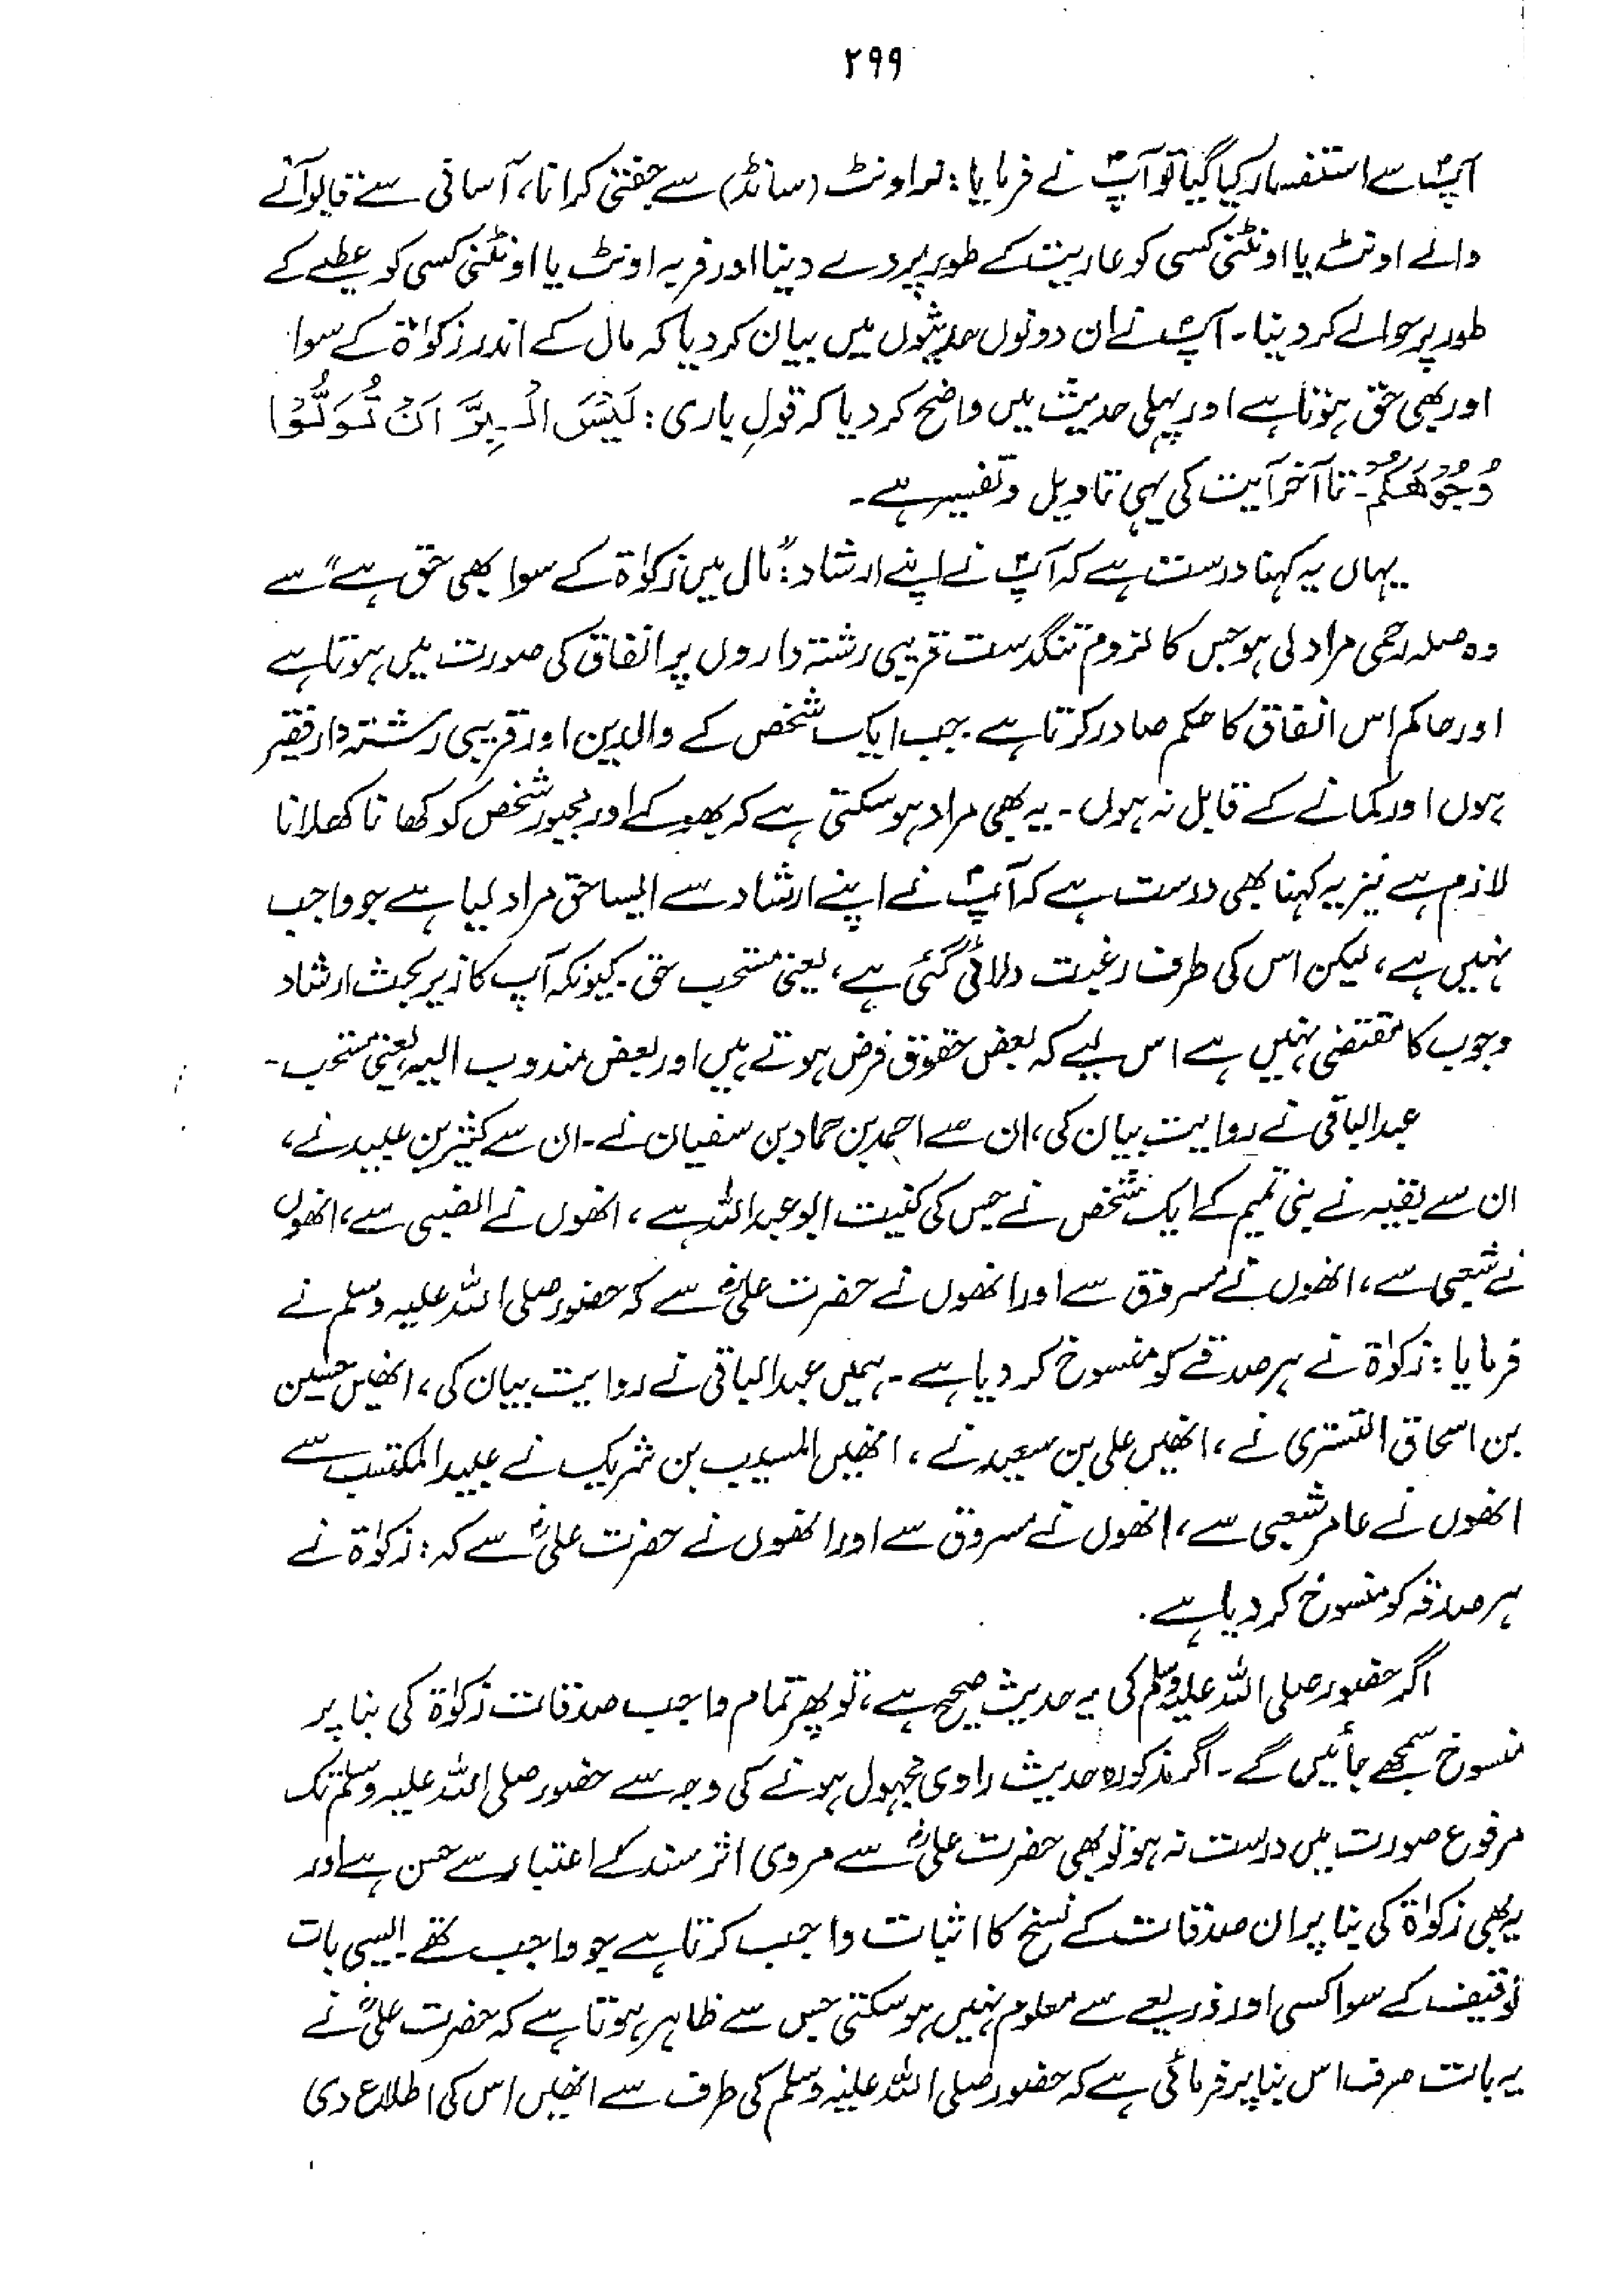 ۲۹۹
آپؐ سے استفسار کیا گیا تو آپؐ نے فرمایا: نر اونٹ (سانڈ) سے جفتی کرانا، آسانی سے قابو آنے
والے اونٹ یا اونٹنی کسی کو عاریت کے طور پر دے دینا اور فربہ اونٹ یا اونٹنی کسی کو عطیے کے
طور پر حوالے کر دینا۔ آپؐ نے ان دونوں حدیثوں میں بیان کر دیا کہ مال کے اندر زکوٰۃ کے سوا
اور بھی حق ہوتا ہے اور پہلی حدیث میں واضح کر دیا کہ قولِ باری: لَیْسَ الْبِرَّ اَنْ تُوَلُّوْا
وُجُوْهَکُمْ۔ تا آخر آیت کی یہی تاویل و تفسیر ہے۔
یہاں یہ کہنا درست ہے کہ آپؐ نے اپنے ارشاد: "مال میں زکوٰۃ کے سوا بھی حق ہے" سے
وہ صلہ رحمی مراد لی ہو جس کا لزوم تنگدست قریبی رشتہ داروں پر انفاق کی صورت میں ہوتا ہے
اور حاکم اس انفاق کا حکم صادر کرتا ہے۔ جب ایک شخص کے والدین اور قریبی رشتہ دار فقیر
ہوں اور کمانے کے قابل نہ ہوں۔ یہ بھی مراد ہو سکتی ہے کہ بھوکے اور مجبور شخص کو کھانا کھلانا
لازم ہے نیز یہ کہنا بھی درست ہے کہ آپؐ نے اپنے ارشاد سے ایسا حق مراد لیا ہے جو واجب
نہیں ہے، لیکن اس کی طرف رغبت دلائی گئی ہے، یعنی مستحب حق۔ کیونکہ آپ کا زیر بحث ارشاد
وجوب کا مقتضی نہیں ہے اس لیے کہ بعض حقوق فرض ہوتے ہیں اور بعض مندوب الیہ یعنی مستحب۔
عبدالباقی نے روایت بیان کی، ان سے احمد بن حماد بن سفیان نے۔ ان سے کثیر بن عبید نے،
ان سے بقیہ نے بنی تمیم کے ایک شخص نے جس کی کنیت ابو عبداللہ ہے، انھوں نے الضبی سے، انھوں
نے شعبی سے، انھوں نے مسروق سے اور انھوں نے حضرت علیؓ سے کہ حضور صلی اللہ علیہ وسلم نے
فرمایا: زکوٰۃ نے ہر صدقے کو منسوخ کر دیا ہے۔ ہمیں عبدالباقی نے روایت بیان کی، انھیں حسین
بن اسحاق التستری نے، انھیں علی بن سعید نے، انھیں المسیب بن شریک نے عبید المکتب سے
انھوں نے عامر شعبی سے، انھوں نے مسروق سے اور انھوں نے حضرت علیؓ سے کہ: زکوٰۃ نے
ہر صدقہ کو منسوخ کر دیا ہے۔
اگر حضور صلی اللہ علیہ وسلم کی یہ حدیث صحیح ہے، تو پھر تمام واجب صدقات زکوٰۃ کی بنا پر
منسوخ سمجھے جائیں گے۔ اگر مذکورہ حدیث راوی مجہول ہونے کی وجہ سے حضور صلی اللہ علیہ وسلم تک
مرفوع صورت میں درست نہ ہو تو بھی حضرت علیؓ سے مروی اثر سند کے اعتبار سے حسن ہے اور
یہ بھی زکوٰۃ کی بنا پر ان صدقات کے نسخ کا اثبات واجب کرتا ہے جو واجب تھے۔ ایسی بات
توقیف کے سوا کسی اور ذریعے سے معلوم نہیں ہو سکتی جس سے ظاہر ہوتا ہے کہ حضرت علیؓ نے
یہ بات صرف اس بنا پر فرمائی ہے کہ حضور صلی اللہ علیہ وسلم کی طرف سے انھیں اس کی اطلاع دی